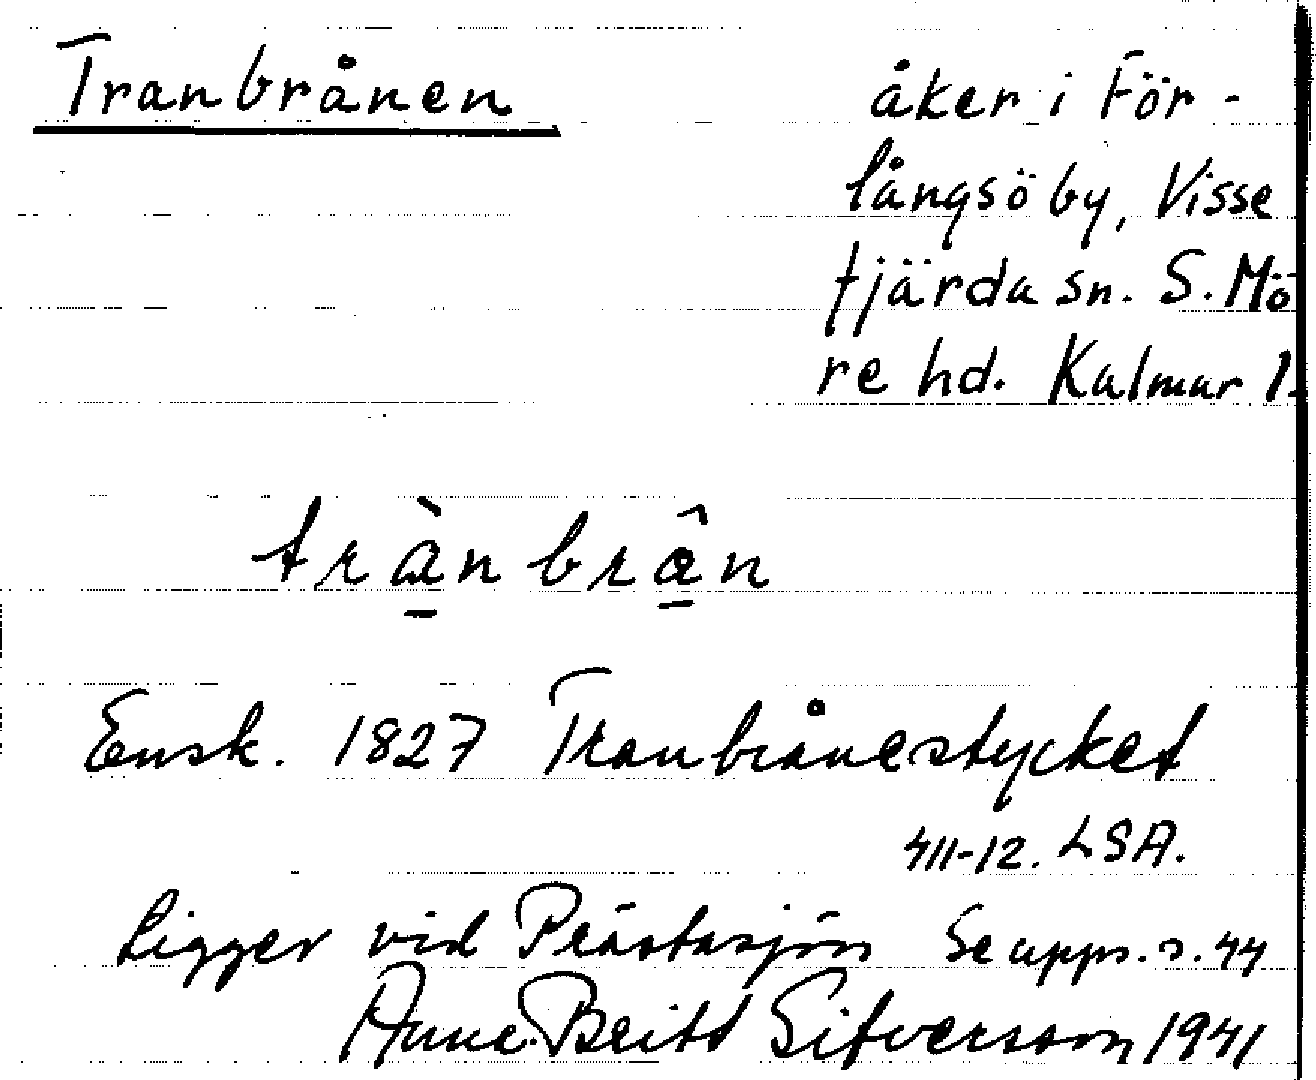 Tranbrånen
åker i För-
långsö by, Visse
fjärda sn. S. Mö
re hd. Kalmar l.
Ensk. 1827 Tranbrånestycket
411-12. LSA.
Ligger vid Prästasjön Se upps. s. 44
Anne Britt Sifversson 1941